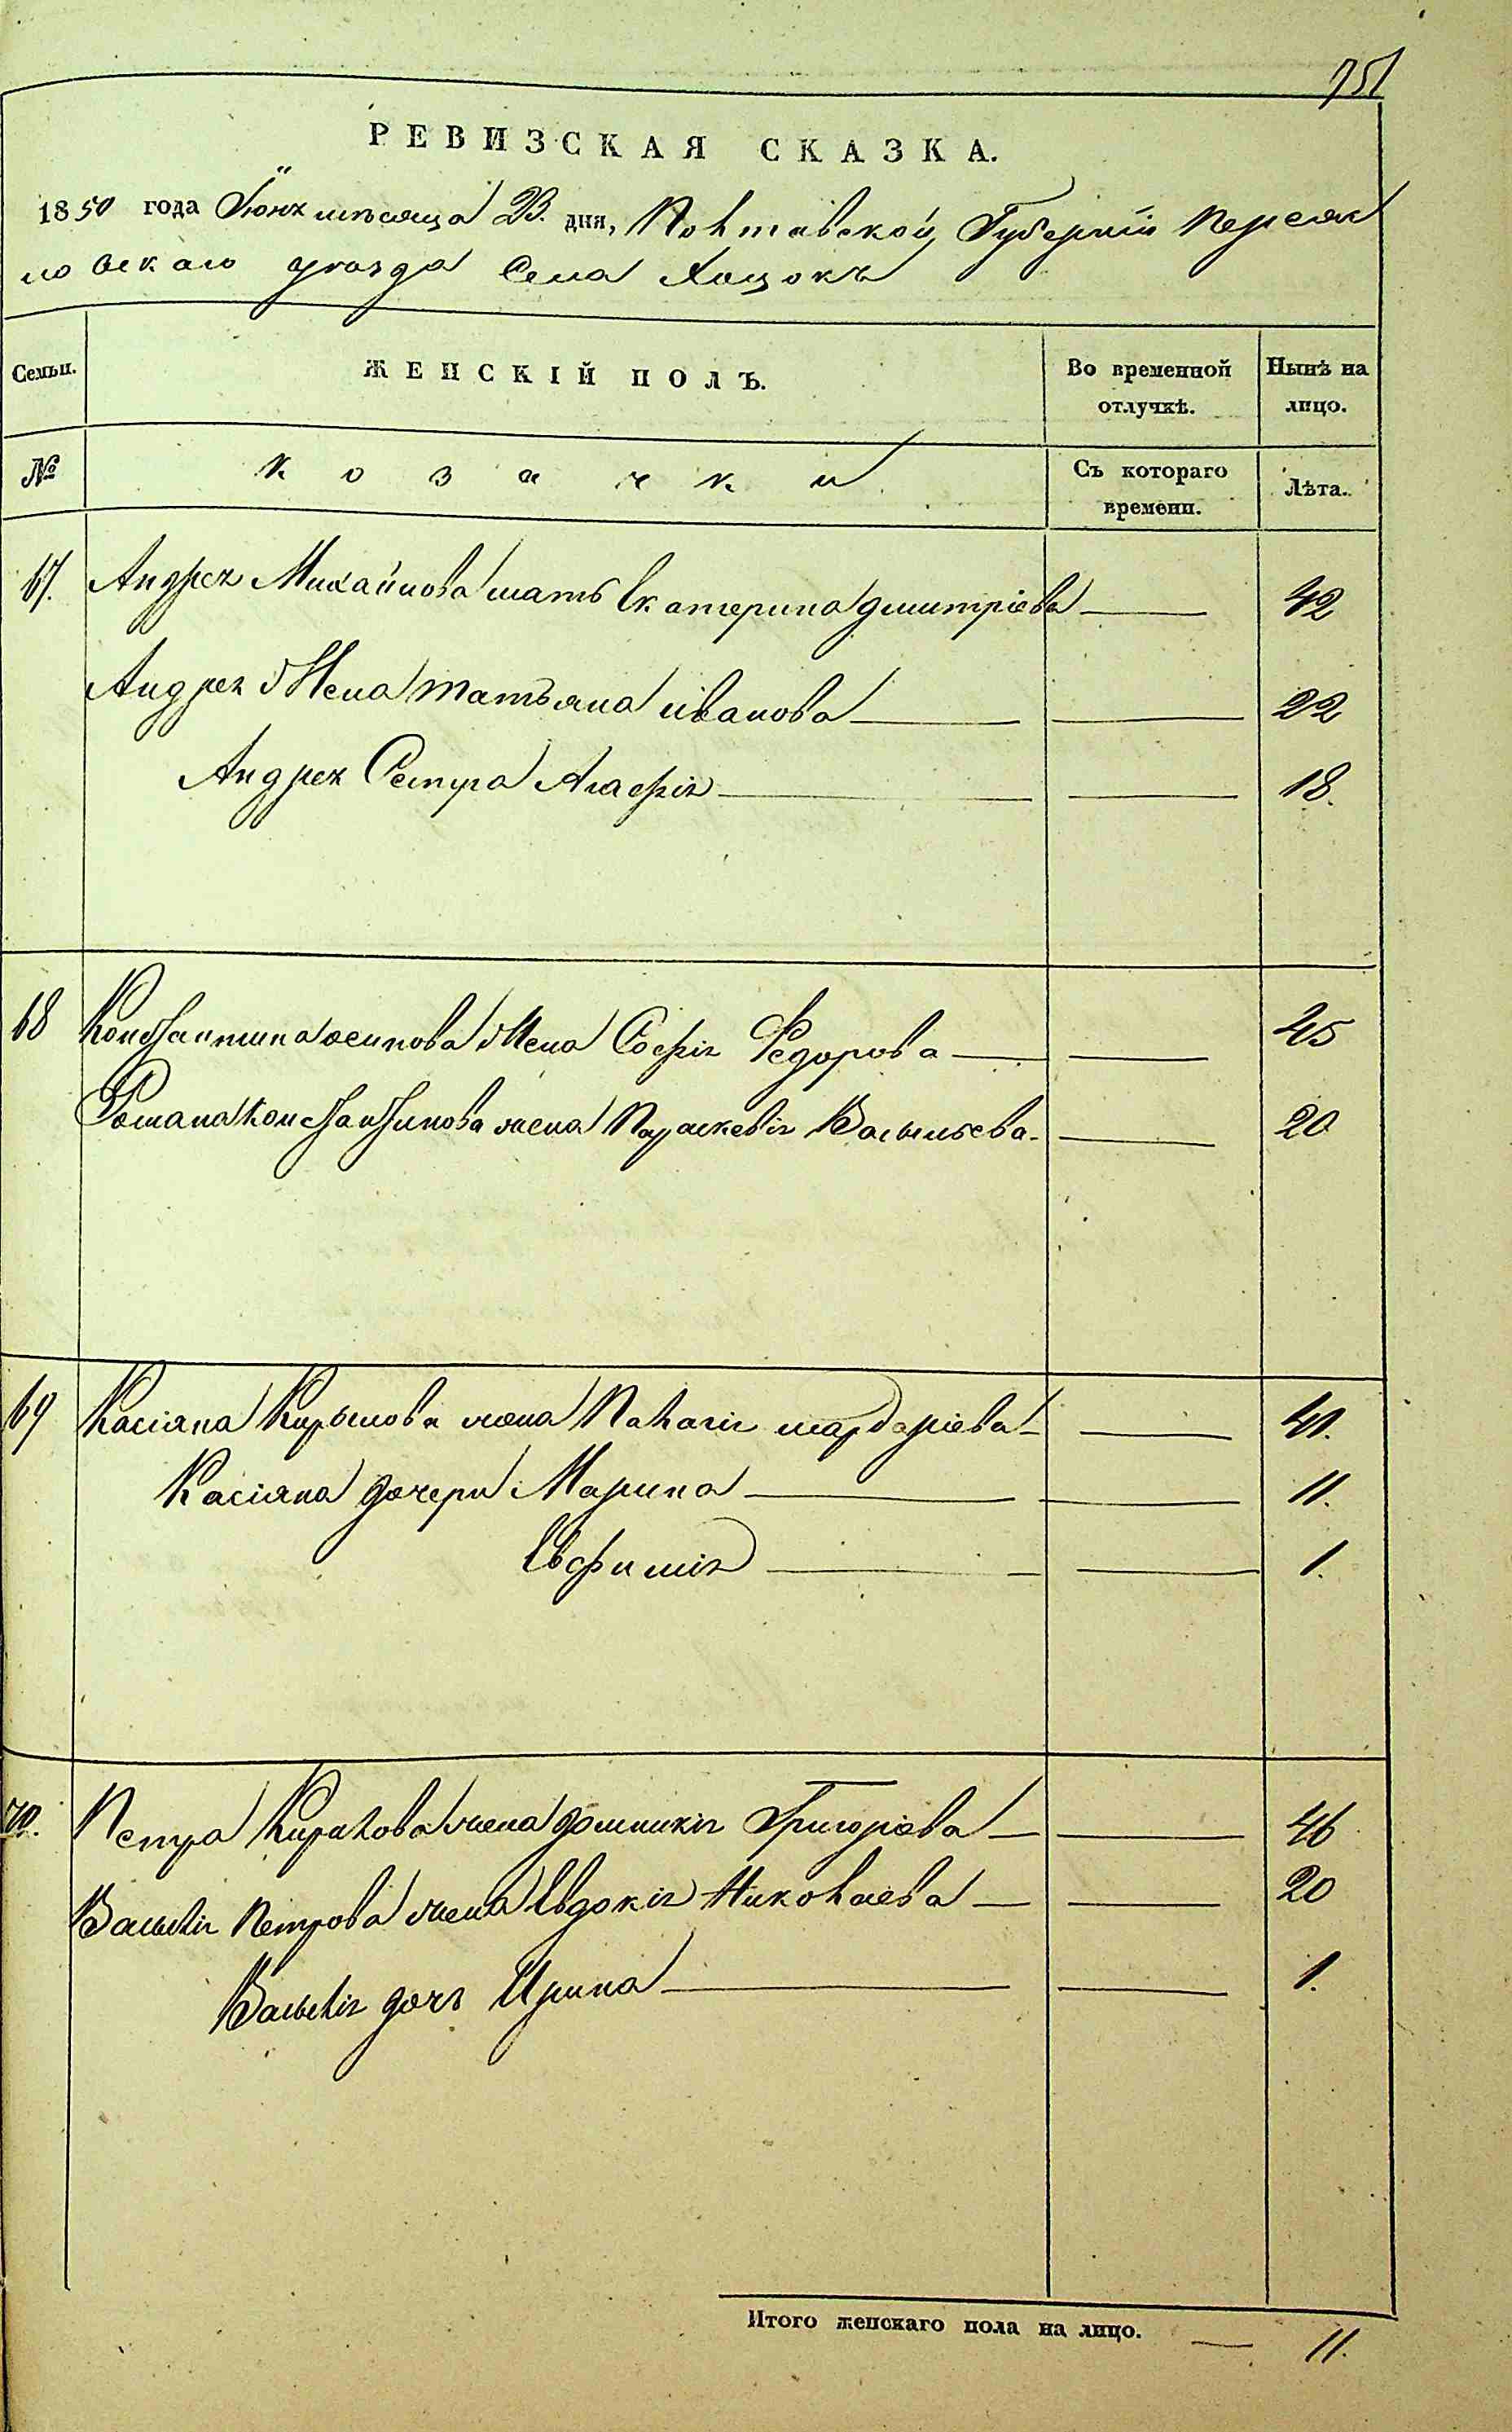 751
РЕВИЗСКАЯ СКАЗКА.
1850 года Іюня мѣсяца 23. дня, Полтавской Губерніи Переяс
ловскаго уезда Села Хоцокъ
Семьи. ЖЕНСКІЙ ПОЛЪ. Во временной отлучкѣ. Нынѣ на лицо.
№ Козачки Съ котораго времени. Лѣта.
67. Андрея Михайлова мать Екатерина дмитріева 42
Андрея Жена татьяна иванова 22
Андрея Сестра Агафія 18.
68 Константина осипова Жена Софія Федорова 45
Романа Константинова жена Параскевія Васильева 20
69 Касіяна Кирылова жена Палагія мардаріева 41.
Касіяна дочери Марина 11.
Евфимія 1.
70. Петра Кирилова жена домникія Григоріева 46
Василія Петрова жена Евдокія Николаева 20
Василія дочь Ирина 1.
Итого женскаго пола на лицо. 11.